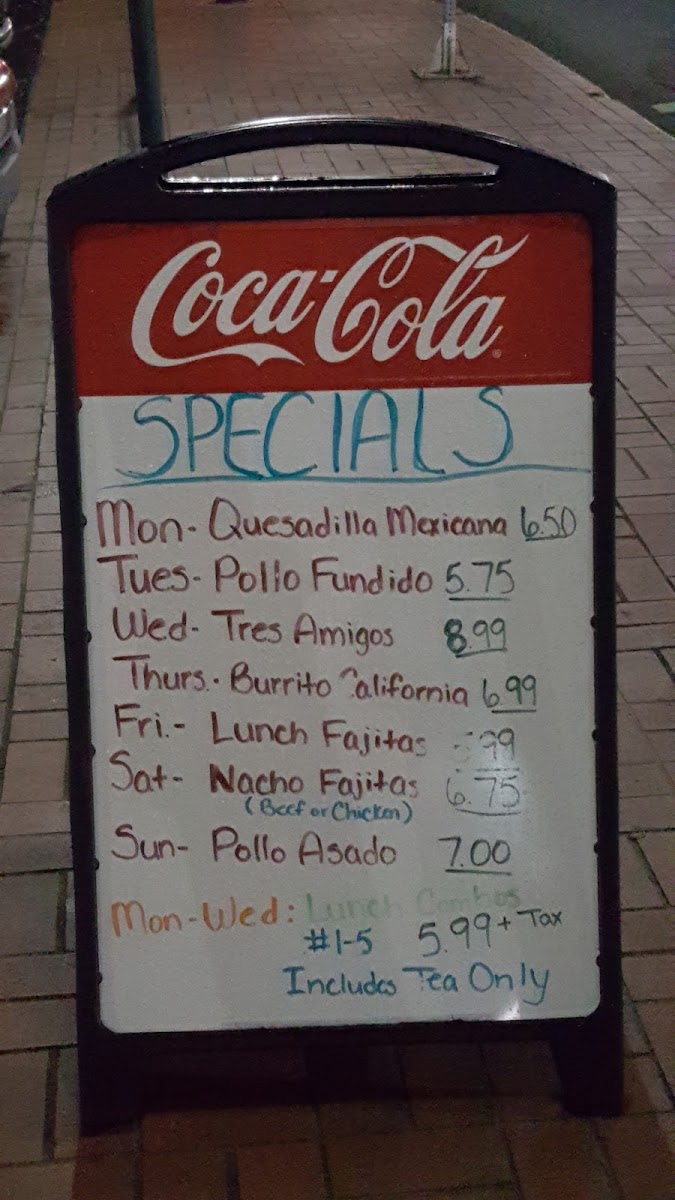 Coca-Cola
SPECIALS
Mon- Quesadilla Mexicana 6.50
Tues- Pollo Fundido 5.75
Wed- Tres Amigos 8.99
Thurs.- Burrito California 6.99
Fri.- Lunch Fajitas .99
Sat- Nacho Fajitas 6.75
(Beef or Chicken)
Sun- Pollo Asado 7.00
Mon-Wed: Lunch Combos
#1-5 5.99 + Tax
Includes Tea Only